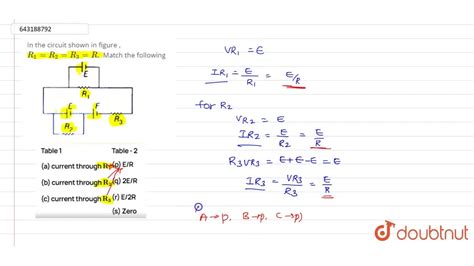 643188792
In the circuit shown in figure ,
R₁ = R₂ = R₃ = R. Match the following
E
R₁
E
F
R₂
R₃
Table 1 Table - 2
(a) current through R₁ (p) E/R
(b) current through R₂ (q) 2E/R
(c) current through R₃ (r) E/2R
(s) Zero
VR₁ = E
IR₁ = E/R₁ = E/R
for R₂
VR₂ = E
IR₂ = E/R₂ = E/R
R₃VR₃ = E+E-E = E
IR₃ = VR₃/R₃ = E/R
A→p, B→p, C→p)
doubtnut